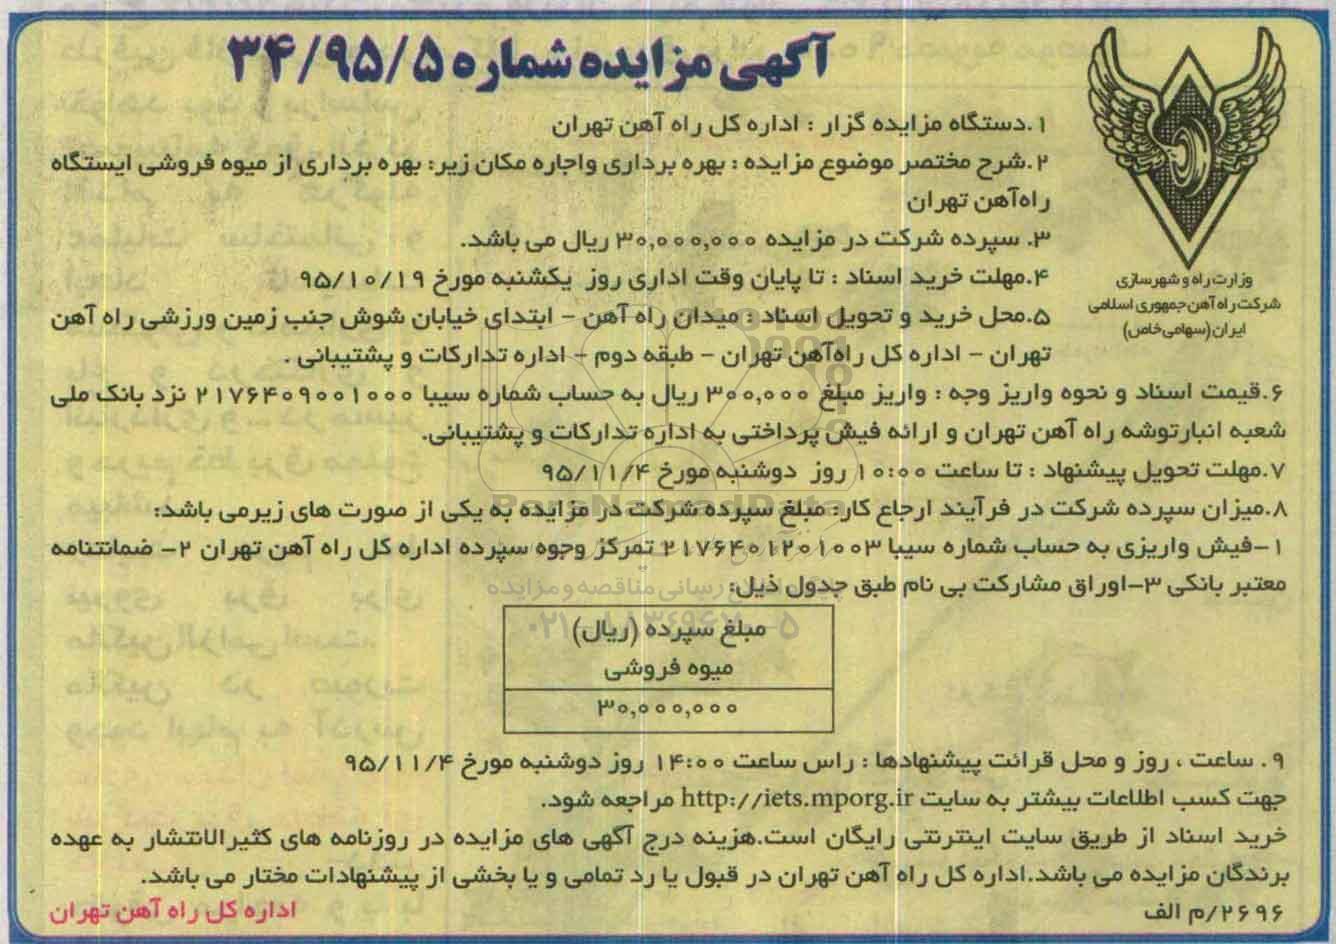 آگهی مزایده شماره ۳۴/۹۵/۵
وزارت راه و شهرسازی
شرکت راه آهن جمهوری اسلامی
ایران (سهامی خاص)
۱.دستگاه مزایده گزار : اداره کل راه آهن تهران
۲.شرح مختصر موضوع مزایده : بهره برداری واجاره مکان زیر: بهره برداری از میوه فروشی ایستگاه
راه‌آهن تهران
۳. سپرده شرکت در مزایده ۳۰,۰۰۰,۰۰۰ ریال می باشد.
۴.مهلت خرید اسناد : تا پایان وقت اداری روز یکشنبه مورخ ۹۵/۱۰/۱۹
۵.محل خرید و تحویل اسناد : میدان راه آهن - ابتدای خیابان شوش جنب زمین ورزشی راه آهن
تهران - اداره کل راه‌آهن تهران - طبقه دوم - اداره تدارکات و پشتیبانی .
۶.قیمت اسناد و نحوه واریز وجه : واریز مبلغ ۳۰۰,۰۰۰ ریال به حساب شماره سیبا ۲۱۷۶۴۰۹۰۰۱۰۰۰ نزد بانک ملی
شعبه انبارتوشه راه آهن تهران و ارائه فیش پرداختی به اداره تدارکات و پشتیبانی.
۷.مهلت تحویل پیشنهاد : تا ساعت ۱۰:۰۰ روز دوشنبه مورخ ۹۵/۱۱/۴
۸.میزان سپرده شرکت در فرآیند ارجاع کار: مبلغ سپرده شرکت در مزایده به یکی از صورت های زیرمی باشد:
۱-فیش واریزی به حساب شماره سیبا ۲۱۷۶۴۰۱۲۰۱۰۰۳ تمرکز وجوه سپرده اداره کل راه آهن تهران ۲- ضمانتنامه
معتبر بانکی ۳-اوراق مشارکت بی نام طبق جدول ذیل:
مبلغ سپرده (ریال)
میوه فروشی
۳۰,۰۰۰,۰۰۰
۹. ساعت ، روز و محل قرائت پیشنهادها : راس ساعت ۱۴:۰۰ روز دوشنبه مورخ ۹۵/۱۱/۴
جهت کسب اطلاعات بیشتر به سایت http://iets.mporg.ir مراجعه شود.
خرید اسناد از طریق سایت اینترنتی رایگان است.هزینه درج آگهی های مزایده در روزنامه های کثیرالانتشار به عهده
برندگان مزایده می باشد.اداره کل راه آهن تهران در قبول یا رد تمامی و یا بخشی از پیشنهادات مختار می باشد.
۲۶۹۶/م الف
اداره کل راه آهن تهران
ParsNamadData